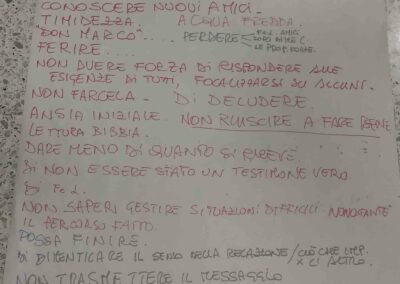 CONOSCERE NUOVI AMICI.
TIMIDEZZA. ACQUA FREDDA
"DON MARCO".... PERDERE
FERIRE....
NON AVERE FORZA DI RISPONDERE ALLE
ESIGENZE DI TUTTI, FOCALIZZARSI SU ALCUNI.
NON FARCELA - DI DELUDERE.
ANSIA INIZIALE. NON RIUSCIRE A FARE BENE
LETTURA BIBBIA.
DARE MENO DI QUANTO SI RICEVE
DI NON ESSERE STATO UN TESTIMONE VERO
NON SAPERE GESTIRE SITUAZIONI DIFFICILI NONOSTANTE
IL PERCORSO FATTO.
POSSA FINIRE.
DI DIMENTICARE IL SENSO DELLA RELAZIONE / CIÒ CHE
NON TRASMETTERE IL MESSAGGIO